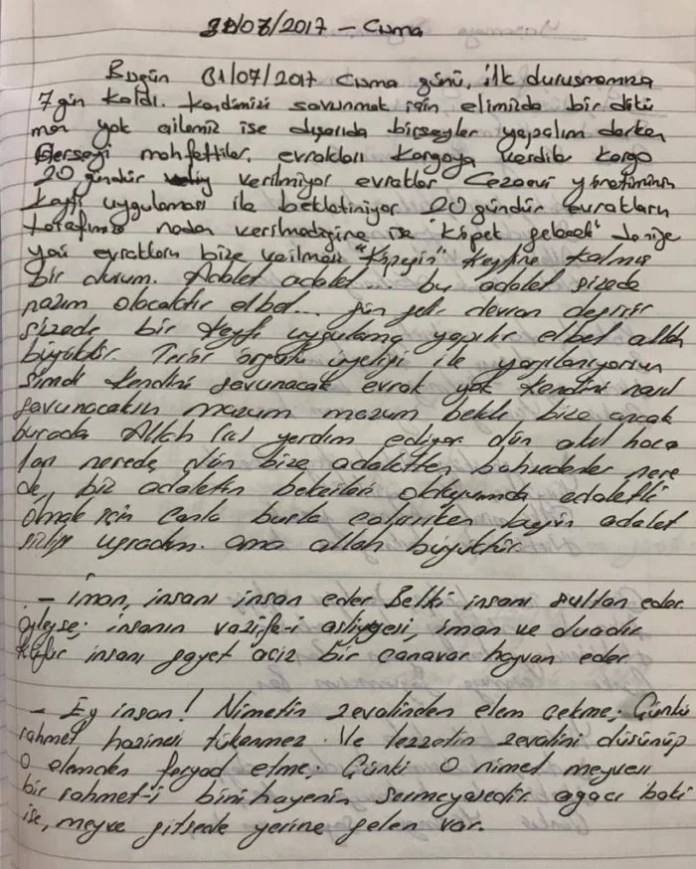 31/07/2017 - Cuma
Bugün 01/07/2017 Cuma günü, ilk durusmamıza
7 gün kaldı. Kendimizi savunmak için elimizde bir dökü
man yok ailemiz ise dışarıda birseyler yapalım derken
Herseyi mahfettiler, evrakları kargoya verdiler kargo
20 gündür verilmiyor evraklar Cezaevi yönetiminin
keyfi uygulaması ile bekletiniyor 20 gündür evrakların
tarafımıza neden verilmedegine ise "köpet gebedi" deniye
yani evrakların bize verilmesi "köpegin" keyfine kalmış
bir durum. Adalet adalet... bu adalet sizede
nazım olacaktır elbet... gün gelir devran değişir
sizede bir keyfi uygulama yapılır elbet allah
büyüktür. Terör örgütü üyeligi ile yargılanıyorsun
şimdi kendini savunacak evrak yok kendini nasıl
savunacaksın mazum mazum bekle bize ancak
burada Allah (cc) yardım ediyor dün akıl hoca
ları nerede dün bize adaletten bahsedenler nere
de, biz adaletin bekcileri adaletli
olmak için canla başla çalışırken bugün adalet
sizlige ugradım. ama allah büyüktür.
- İman, insanı insan eder Belki insanı sultan eder.
Öyleyse; insanın vazife-i asliyyesi, iman ve duadır
küfür insanı gayet aciz bir canavar hayvan eder
- Ey insan! Nimetin zevalinden elem çekme; Çünkü
rahmet hazinesi tükenmez. Ve lezzetin zevalini düşünüp
o elemden feryad etme; Çünkü o nimet meyvesi
bir rahmet-i bînihayenin sermeyasidir ağacı baki
ise, meyve gitsede yerine gelen var.